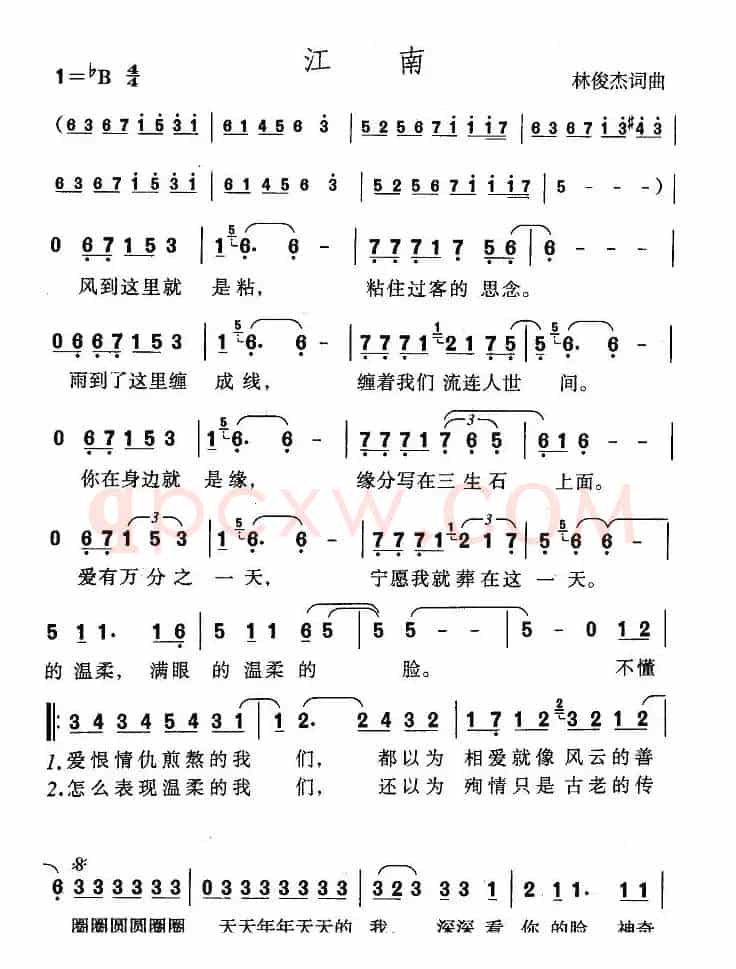 江 南
1=♭B 4/4 林俊杰词曲
(6 3 6 7 1 5 3 1 | 6 1 4 5 6 3 | 5 2 5 6 7 1 1 1 7 | 6 3 6 7 1 3 #4 3 |
6 3 6 7 1 5 3 1 | 6 1 4 5 6 3 | 5 2 5 6 7 1 1 1 7 | 5 - - - )|
0 6 7 1 5 3 | 1 5 6. 6 - | 7 7 7 1 7 5 6 | 6 - - |
风到这里就 是粘， 粘住过客的 思念。
0 6 6 7 1 5 3 | 1 5 6. 6 - | 7 7 7 1 1 2 1 7 5 | 5 6. 6 - |
雨到了这里缠 成线， 缠着我们 流连人世 间。
0 6 7 1 5 3 | 1 5 6. 6 - | 7 7 7 1 7 6 5 | 6 1 6 - |
你在身边就 是缘， 缘分写在三生石 上面。
0 6 7 1 5 3 | 1 5 6. 6 - | 7 7 7 1 1 2 1 7 | 5 6 6 - |
爱有万分之 一天， 宁愿我就葬在这 一天。
5 1 1. 1 6 | 5 1 1 6 5 | 5 5 - - | 5 - 0 1 2 |
的温柔， 满眼 的温柔的 脸。 不懂
3 4 3 4 5 4 3 1 | 1 2. 2 4 3 2 | 1 7 1 2 2 3 4 3
1.爱恨情仇煎熬的我 们， 都以为 相爱就像 风云的善
2.怎么表现温柔的我 们， 还以为 殉情只是 古老的传
6 3 3 3 3 3 3 | 0 3 3 3 3 3 3 | 3 2 3 3 3 1 | 2 1 1. 1 1 |
圈圈圆圆圈圈 天天年年天天的 我， 深深 看 你 的脸 神奇
qpcxw.COM